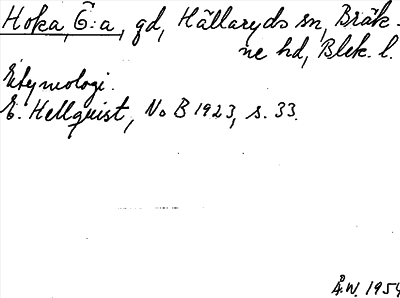 Hoka, Ö:a, gd, Hällaryds sn, Bräk-
ne hd, Blek. l.
Etymologi.
E. Hellquist, No B 1923, s. 33.
Å.W. 1954